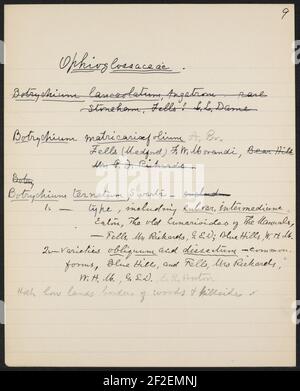 9
Ophioglossaceae.
Botrychium lanceolatum, Angstrom, rare
Stoneham, Fells! L.L. Dame
Botrychium matricariæfolium A. Br.
Fells (Medford) F. W. Morandi, Bear Hill
Mrs
Botry
Botrychium ternatum, Swartz
1. – type, including
Eaton, The old lunarioides of the Manuals,
– Fells, Mrs Richards, G.E.D., Blue Hills, W.H.M.
2. – Varieties obliquum and dissectum – common
forms, Blue Hills, and Fells, Mrs Richards,
W.H.M., G.E.D.
low lands borders of woods & hillsides
alamy
Image ID: 2F2EMNJ
www.alamy.com